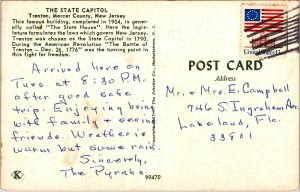 THE STATE CAPITOL
Trenton, Mercer County, New Jersey
This famous building, completed in 1904, is generally called "The State House". Here the legislature formulates the laws which govern New Jersey.
Trenton was chosen as the State Capitol in 1790.
During the American Revolution "The Battle of
Trenton - Dec. 26, 1776" was the turning point in
this fight for freedom.
Arrived here on
Tues. at 8:30 P.M.
after good safe
trip. Enjoying being
with family + seeing
friends. Weather is
warm but some rain.
Sincerely,
The Pyrahs
K
99470
POST CARD
Address
Mr. + Mrs. E. Campbell
746 S. Ingraham Ave.
Lakeland, Fla.
33801